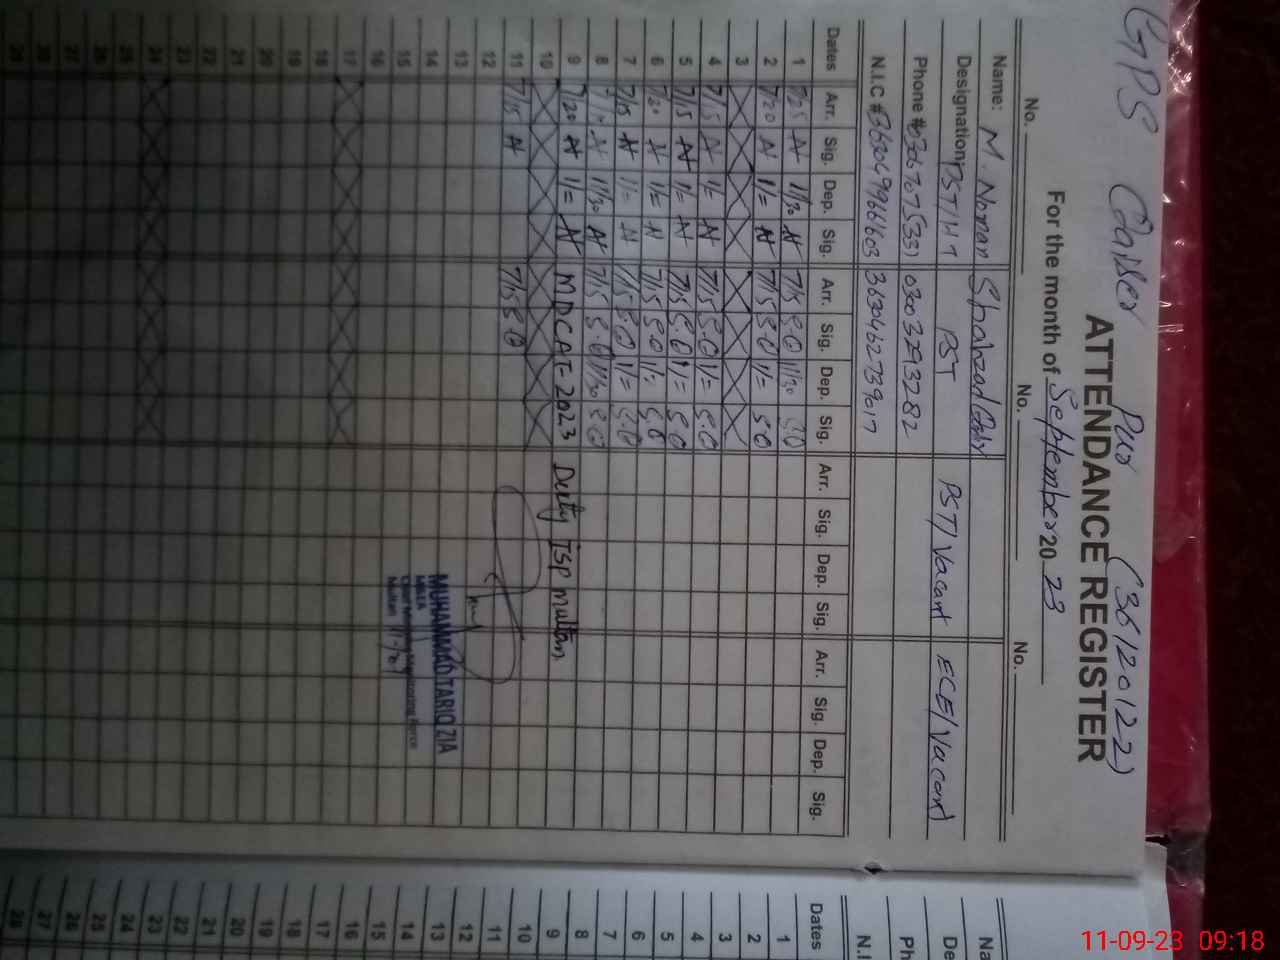 GPS Qaiser Pur (36120122)
ATTENDANCE REGISTER
For the month of September 2023
No. No. No.
Name: M. Noman Shahzad
Designation PST/HT PST PST/Vacant ECE/Vacant
Phone # 03003293282
N.I.C # 3630499661603 3630462739017
Dates Arr. Sig. Dep. Sig. Arr. Sig. Dep. Sig. Arr. Sig. Dep. Sig. Arr. Sig. Dep. Sig.
1 7/25 11/30 7/15 S.Q 11/30 S.Q
2 7/20 11/= 7/15 S.Q 11/= S.Q
3
4 7/15 11/= 7/15 S.Q 11/= S.Q
5 7/15 11/= 7/15 S.Q 11/= S.Q
6 7/20 11/= 7/15 S.Q 11/= S.Q
7 7/15 11/= 7/15 S.Q 11/= S.Q
8 11/30 7/15 S.Q 11/30 S.Q
9 7/20 11/= MDCAT-2023 Duty ISP Multan
10
11 7/15 7/15 S.Q
12
13
14
15
16
17
18
19
20
21
22
23
24
25
26
27
MUHAMMAD TARIQ ZIA
MEA
Multan
Dates
1
2
3
4
5
6
7
8
9
10
11
12
13
14
15
16
17
18
19
20
21
22
23
24
25
26
27
28
11-09-23 09:18